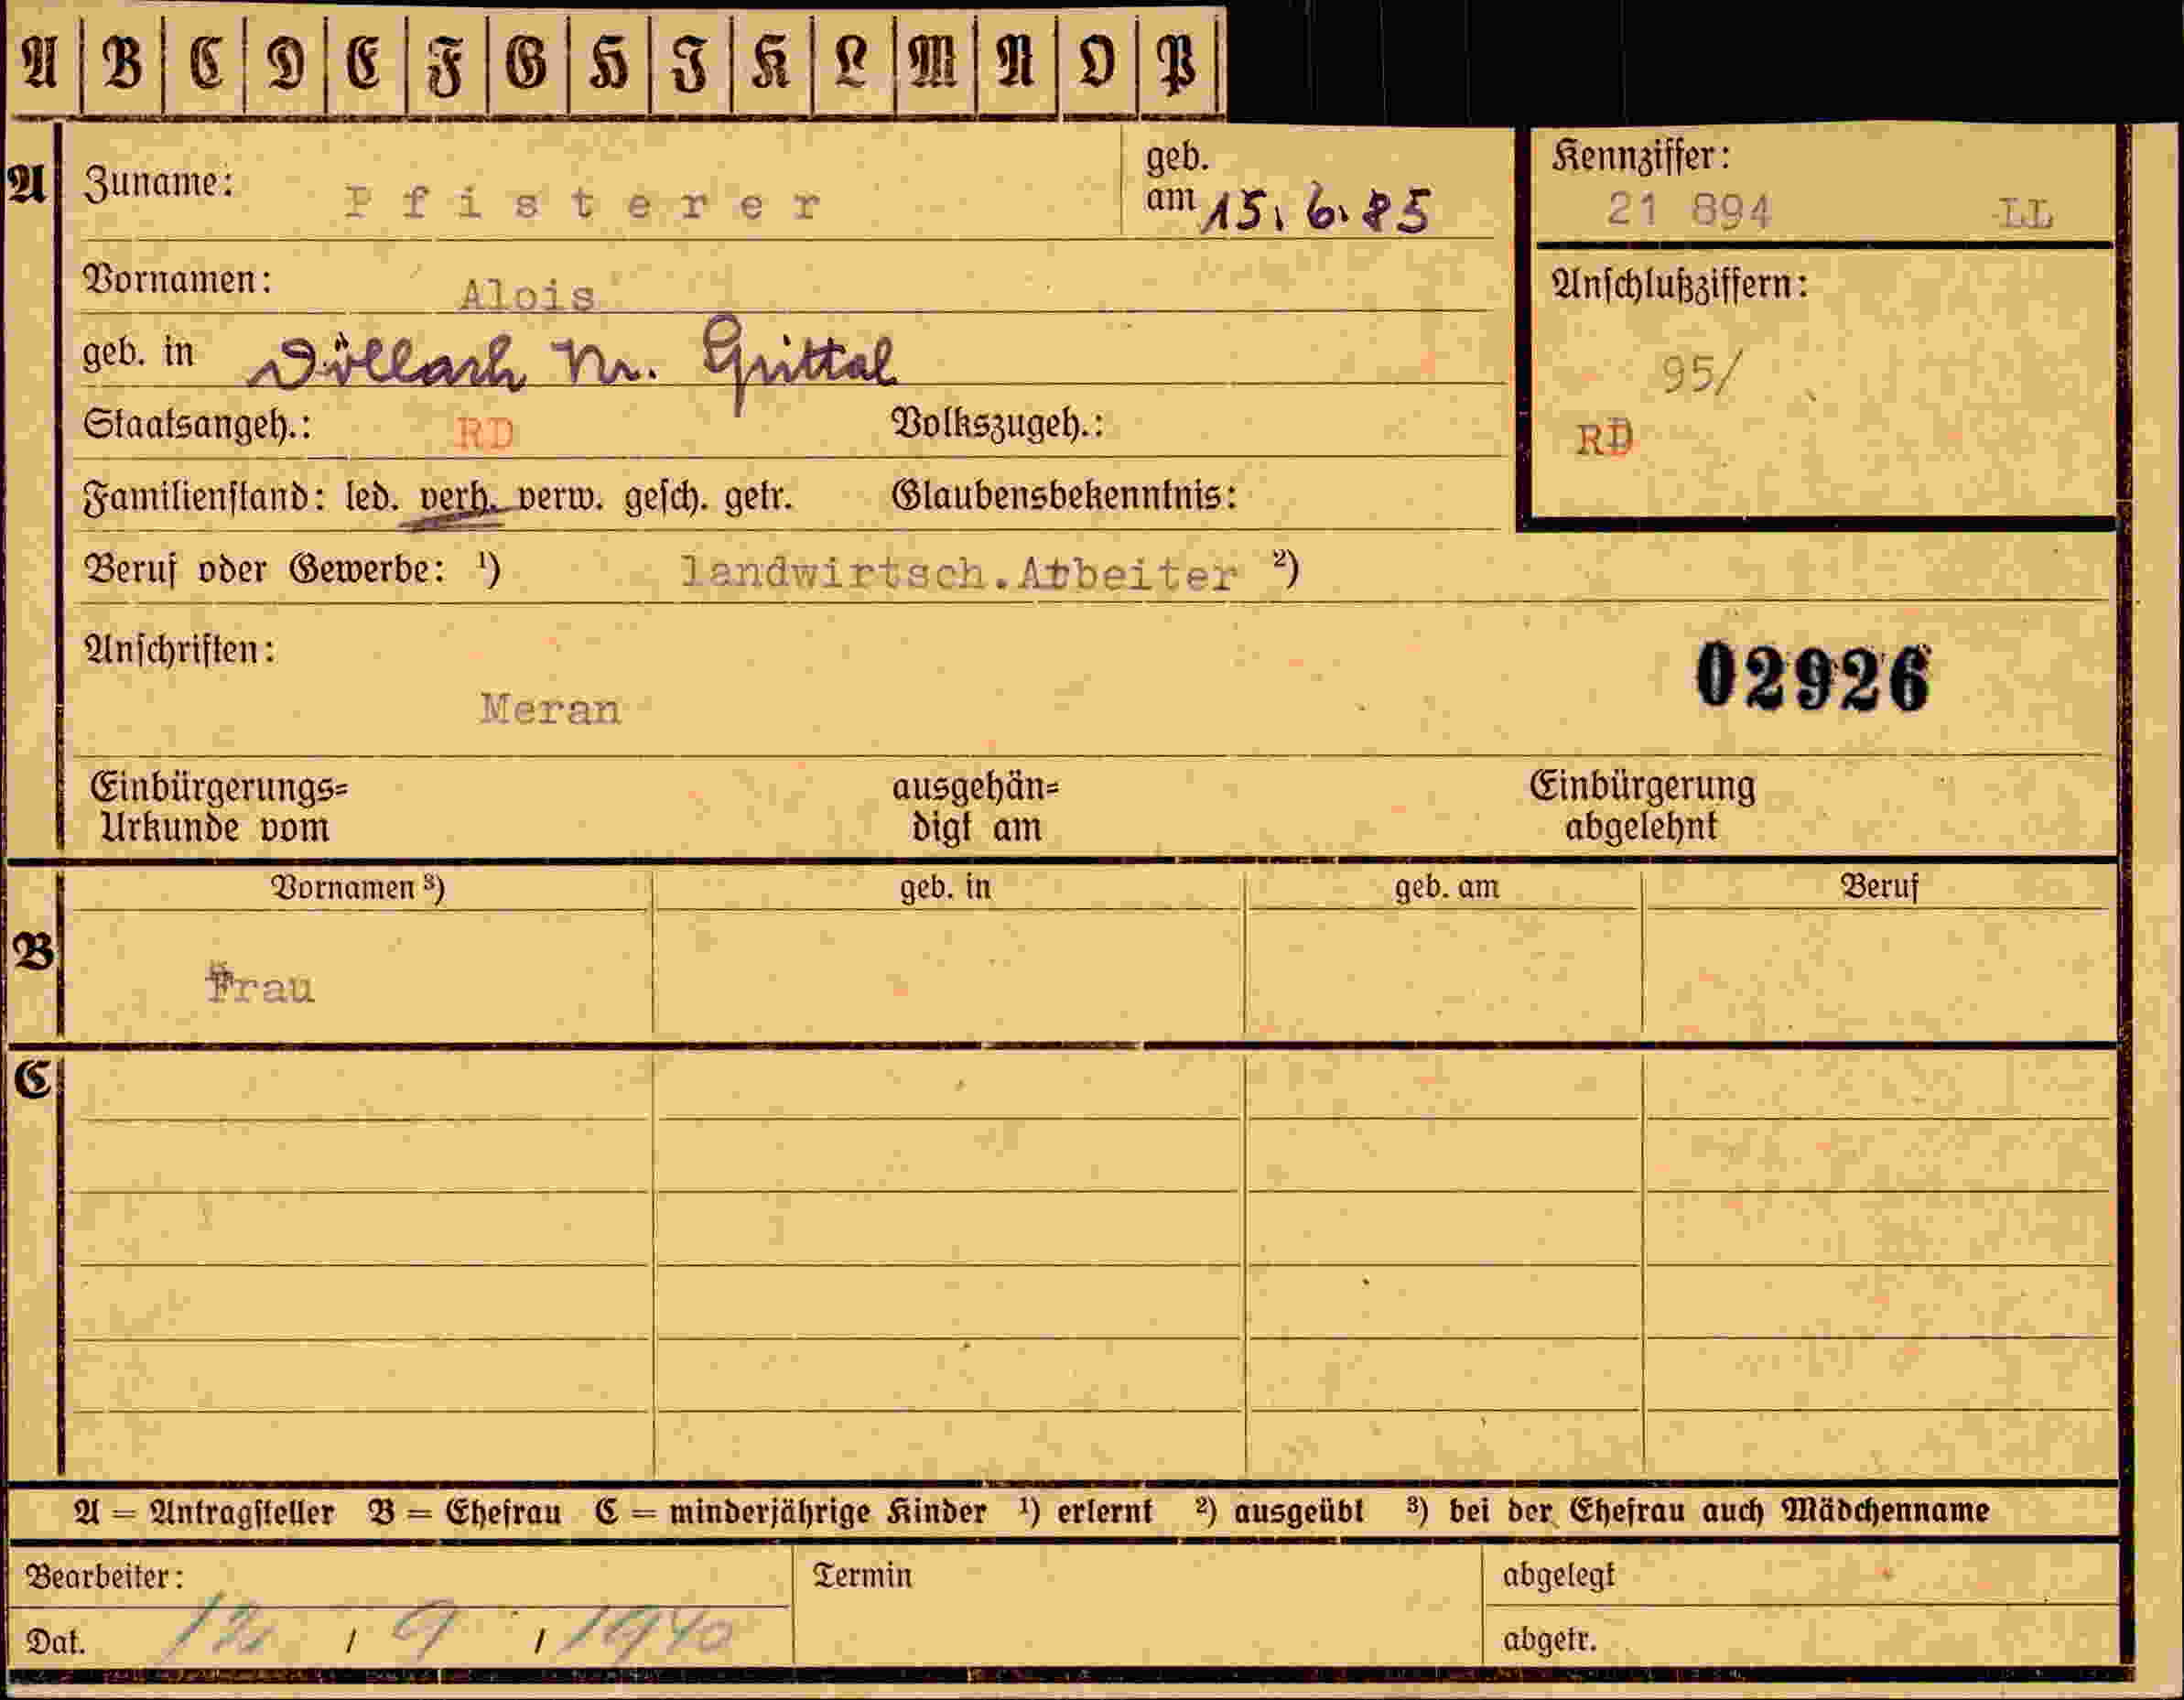 A B C D E F G H I K L M N O P
A
Zuname: Pfisterer
geb. am 15.6.85
Kennziffer:
21 894 LL
Vornamen: Alois
Anschlußziffern:
95/
RD
geb. in Döllach Nr. Spittal
Staatsangeh.: RD Volkszugeh.:
Familienstand: led. verh. verw. gesch. getr. Glaubensbekenntnis:
Beruf oder Gewerbe: ¹) landwirtsch.Arbeiter ²)
Anschriften:
02926
Meran
Einbürgerungs= ausgehän= Einbürgerung
Urkunde vom digt am abgelehnt
Vornamen ³) geb. in geb. am Beruf
B
Frau
C
A = Antragsteller B = Ehefrau C = minderjährige Kinder ¹) erlernt ²) ausgeübt ³) bei der Ehefrau auch Mädchenname
Bearbeiter: Termin abgelegt
Dat. / 9 / 1940 abgetr.